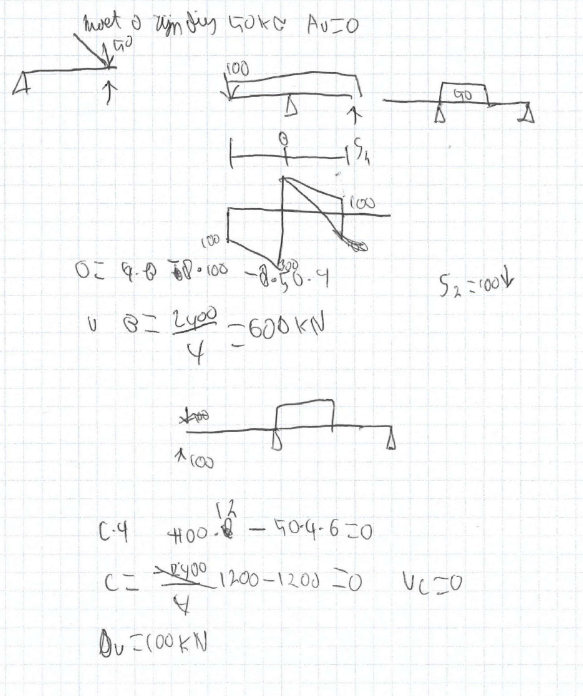 moet 0 zijn 50kN Av=0
50
100
50
B S1
100
100
300
0=4·B 8·100 -8·50·4
S2=100↓
V B=2400/4=600kN
↑100
C·4 100·12 - 50·4·6=0
C= 1200-1200=0 Vc=0
Dv=100KN